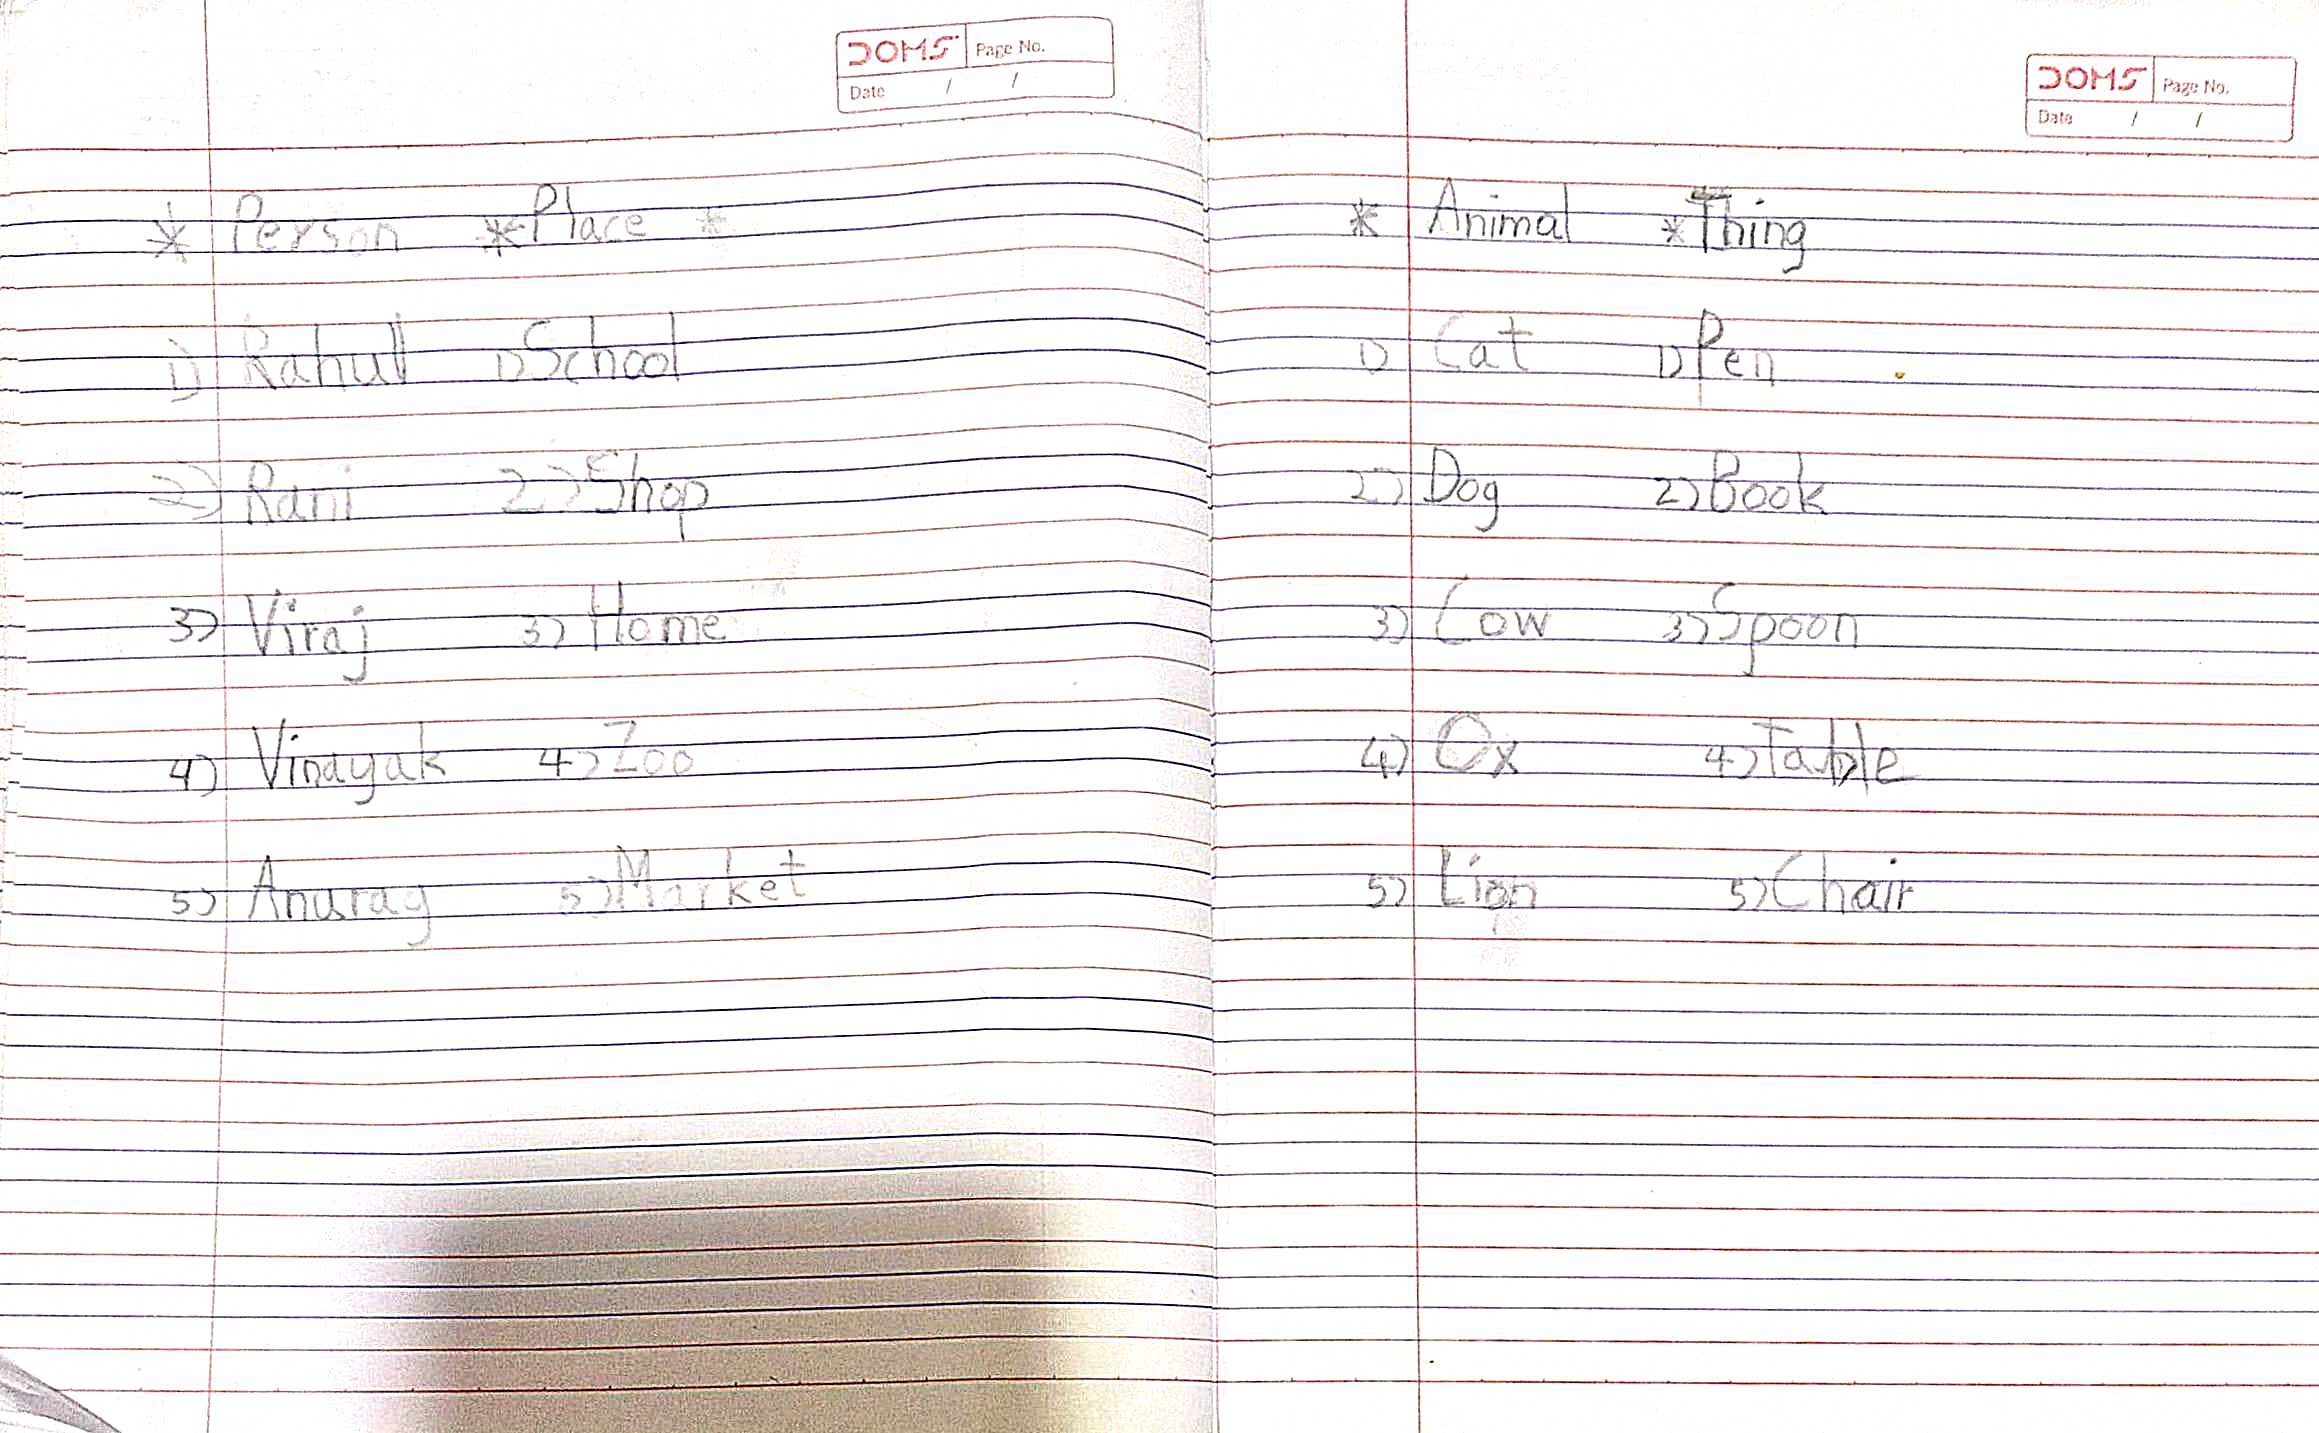 DOMS Page No.
Date / /
* Person * Place *
1) Rahul 1) School
2) Rani 2) Shop
3) Viraj 3) Home
4) Vinayak 4) Zoo
5) Anurag 5) Market
DOMS Page No.
Date / /
* Animal * Thing
1) Cat 1) Pen
2) Dog 2) Book
3) Cow 3) Spoon
4) Ox 4) Table
5) Lion 5) Chair